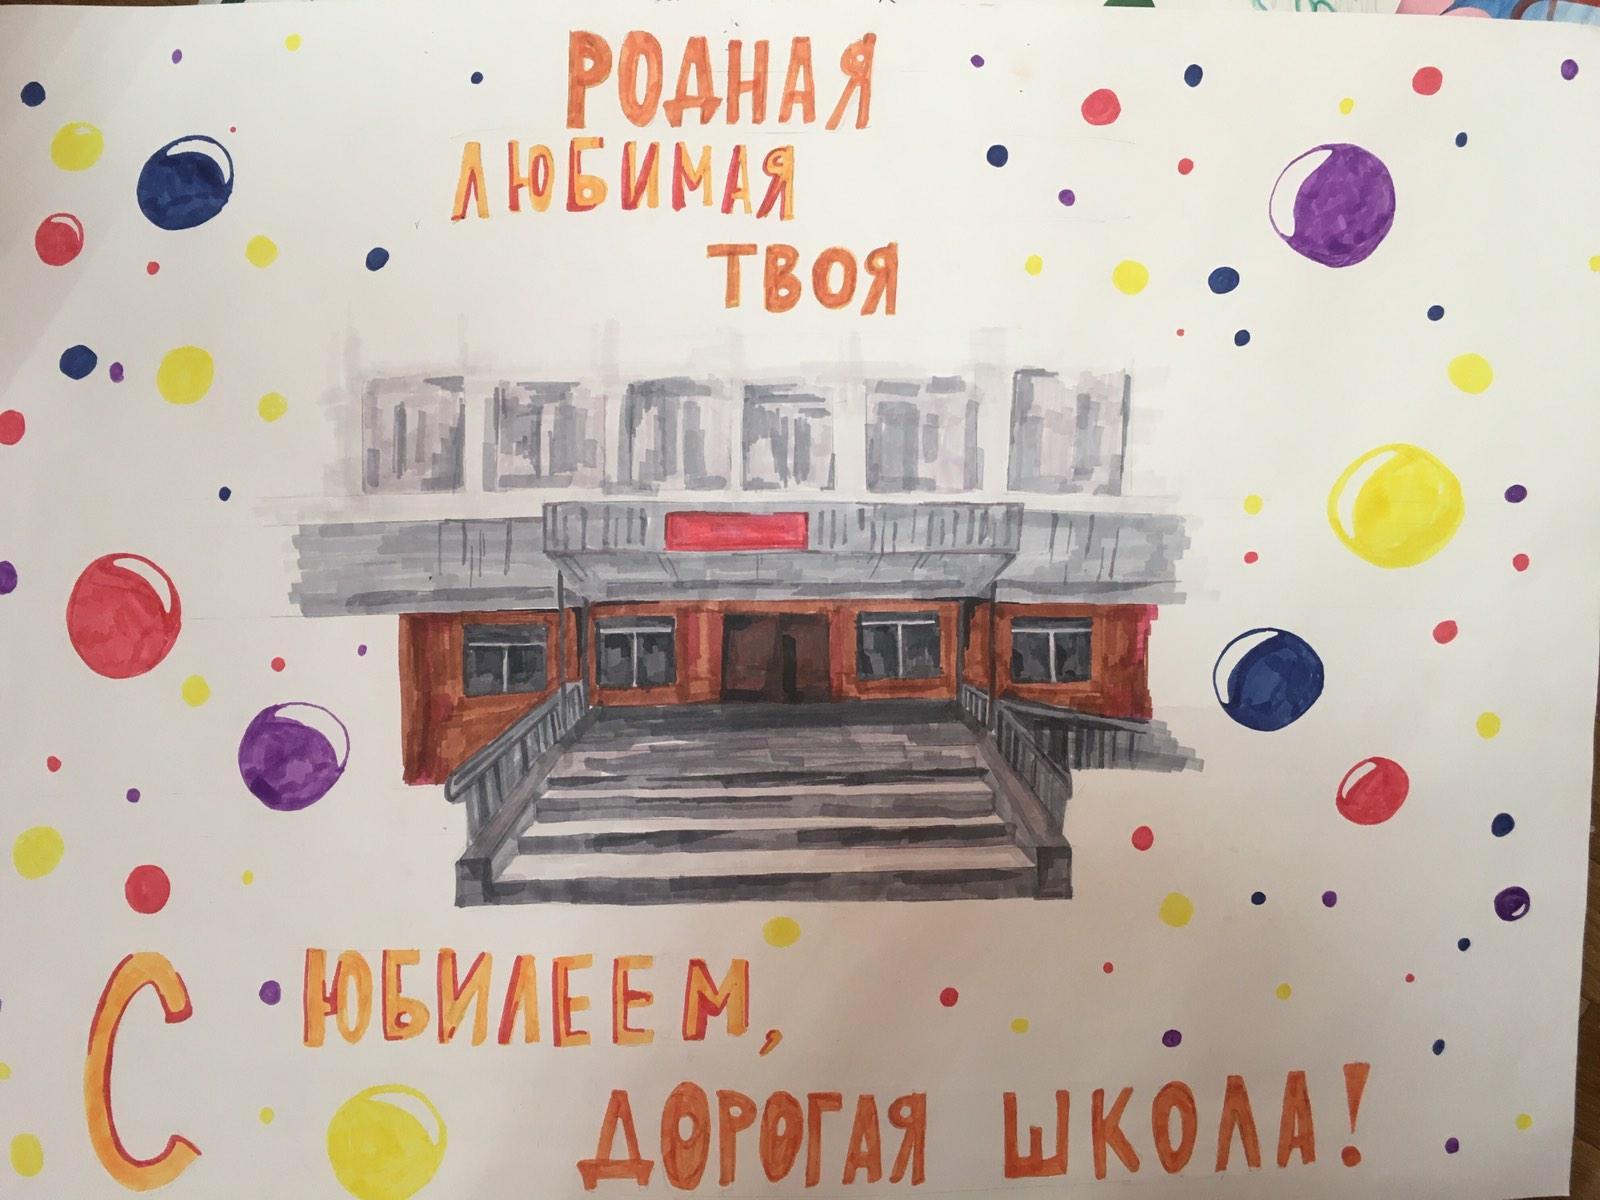 РОДНАЯ
ЛЮБИМАЯ
ТВОЯ
С ЮБИЛЕЕМ,
ДОРОГАЯ ШКОЛА!